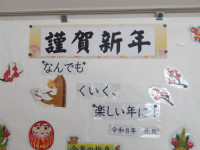 謹賀新年
なんでも
くいくい
楽しい年に!
令和8年 元旦